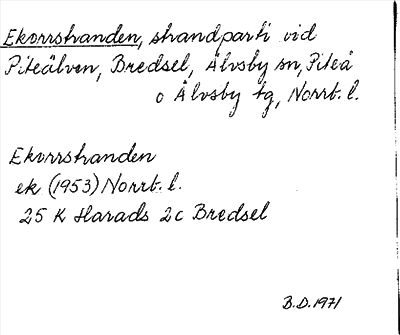 Ekorrstranden, strandparti vid
Piteälven, Bredsel, Älvsby sn, Piteå
o Älvsby tg, Norrb. l.
Ekorrstranden
ek (1953) Norrb. l.
25 K Harads 2c Bredsel
B.D. 1971